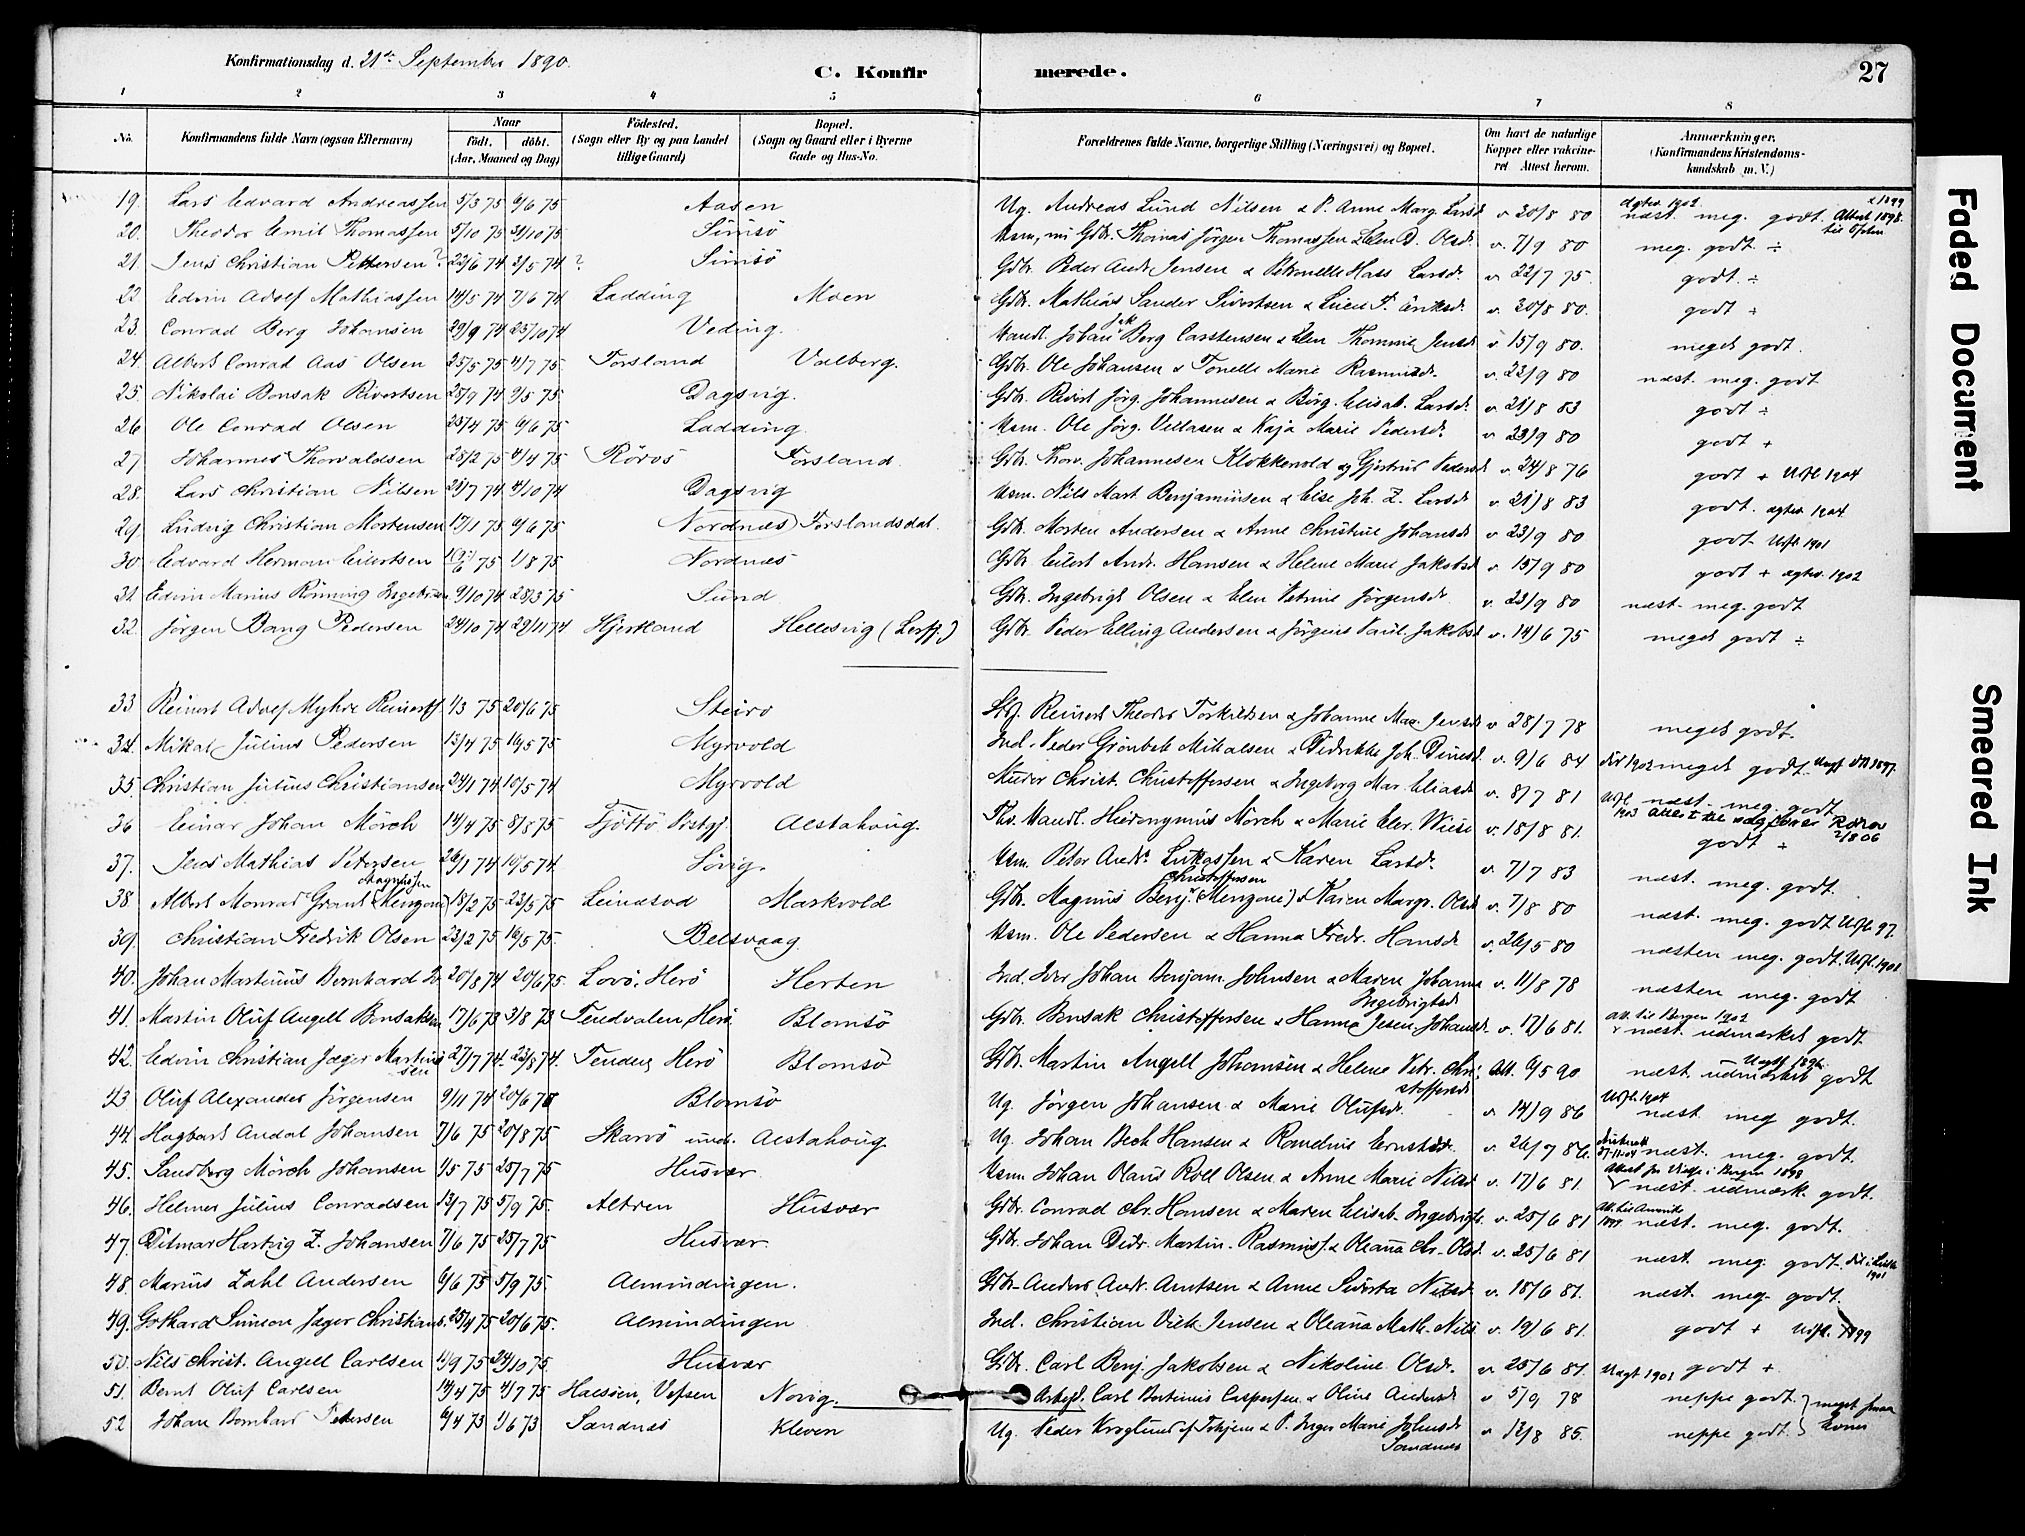 Konfirmationsdag d. 21de September 1890.
C. Konfirmerede.
27
1 2 3 4 5 6 7 8
No. Konfirmandens fulde Navn (ogsaa Efternavn) Naar Født, døbt. (Aar, Maaned og Dag) Födested. (Sogn eller By og paa Landet tillige Gaard) Bopæl. (Sogn og Gaard eller i Byerne Gade og Hus-No. Forældrenes fulde Navne, borgerlige Stilling (Næringsvei) og Bopæl. Om havt de naturlige Kopper eller vakcineret Attest herom. Anmærkninger. (Konfirmandens Kristendomskundskab m. V.)
19. Lars Edvard Andreassen 5/3 75 6/6 75 Aasen Ug. Andreas Lund Nilsen & P. Anne Marg. Larsd v 20/8 80 næst. meg. godt. Attest 1898.
20. Theodor Emil Thomassen 5/10 75 31/10 75 Simsö Thomas Jörgen Thomassen & Elen D. Olsd. v. 7/9 80 meg. godt ÷
21. Jens Christian Pettersen? 22/6 74 3/5 74? Simsö Gdbr. Peder Andr. Jensen & Petronelle Hass Larsd. v 22/7 75. godt ÷
22. Edvin Adolf Mathiassen 14/5 74 7/6 74 Ladding Moen Gdbr. Mathias Sander Sivertsen & Eriksd. v. 20/8 80. godt +
23. Conrad Berg Johansen 29/9 74 25/10 74 Veding. Handl. Johan Berg Carstensen & Elen Thommine Jensd v 15/9 80. meget godt.
24. Albert Conrad Aas Olsen 25/5 75 4/7 75. Forsland Valberg. Gdbr. Ole Johansen & Tonelle Marie Rasmusd. v. 23/9 80 næst. meg. godt
25. Nikolai Bensak Rivertsen 28/9 74 9/5 75. Dagsvig. Gdbr. Rivert Jörg. Johannesen & Birg. Elisab. Larsd. v. 21/8 83 godt ÷
26 Ole Conrad Olsen 25/4 75 6/6 75 Ladding. Hsm. Ole Jörg. & Kaja Marie Pedersd. v 23/9 80 godt +
27 Johannes Thorvaldsen 28/2 75 4/4 75. Röros Forsland. Gdbr. Thorv. Johannesen Klokkervold og Gjertrud Pedersd v. 24/8 76 godt + Udfl. 1904
28. Lars Christian Nilsen 21/7 74 4/10 74 Dagsvig Hsm. Nils Mart. Benjaminsen & Else Joh. Z. Larsd. v. 21/8 83 godt. 1904
29. Ludvig Christian Mortensen 17/1 75 6/6 75 (Nordnæs) Forslandsdal. Gdbr. Morten Andersen & Anne Christine Johansd v 23/9 80 godt Udfl. 1901
30. Edvard Herman Eilertsen 75 1/8 75 Nordnæs Gdbr. Eilert Andr. Hansen & Helene Marie Jakobsd v. 15/9 80 godt + 1902
31. Edvin Marius Rönning 9/10 74 28/3 75 Sund. Gdbr. Ingebrigt Olsen & Elen Petrine Jörgensd. v. 23/9 80 næst. meg. godt
32. Jörgen Bang Pedersen 24/10 74 29/11 74 Hjertland Hellesvig Gdbr. Peder Elling Andersen & Jörgine Paul. Jakobsd v. 14/6 75 meget godt ÷
33 Reinert Adolf Myhre 1/3 75 20/6 75 Steiro Reinert Theodor Torkilsen & Johanne Jensd v 28/7 78 meget godt.
34. Mikal Julius Pedersen 13/4 75 16/5 75 Myrvold Ind. Peder Grönbek Mikalsen & Didrikke Joh. v. 9/6 84 meget godt.
35. Christian Julius Christiansen 24/1 74 10/5 74 Myrvold Christ. Christoffersen & Ingeborg Mar. Eliasd v. 8/7 81 næst. meg. godt.
36 Einar Johan Mörch 14/4 75 8/8 75 Tjöttö Prstgj. Alstahoug. Handl. Hieronymus Mörch & Marie Elev. Wiese v. 18/8 81. godt ÷
37. Jens Mathias Petersen 26/1 74 10/5 74 Sövig. Hsm. Peter Andr. Lukassen & Karen Larsd. v. 7/7 83 næst. meg. godt.
38 Albert Monrad Grant (Menzoni) Magnussen 18/2 75 23/5 75 Leinesod Markvold Gdbr. Magnus Benj. (Menzoni) Christoffersen & Karen Margr. Olsd v. 7/8 80 næst. meg. godt Udfl. 97.
39. Christian Fredrik Olsen 23/2 75 16/5 75. Belsvaag Hsm. Ole Pedersen & Hanna Fredr. Hansd. v. 26/5 80 næsten meg. godt. Udfl. 1901
40. Johan Martinus Bernhard 20/8 74 20/6 75. Lovö, Herö Herten Ind. Iver Johan Benjam. Johnsen & Maren Johanna Ingebrigtsd v. 11/8 78 næsten meg. godt
41. Martin Oluf Angell Bensaksen 17/6 73 3/8 73 Tendvalen, Herö Blomsö Gdbr. Bensak Christoffersen & Hanna Jesen. Johansd. v. 17/6 81. Att. til Bergen 1902 næst. udmærket godt
42. Edvin Christian Jæger Martinsen 27/7 74. 23/8 74. Tenden, Herö Blomsö Gdbr. Martin Angell Johansen & Helene Petr. Christoffersd Att. 6/5 90 næst. udmærket godt
43 Oluf Alexander Jörgensen 9/11 74 20/6 75 Blomsö Ug. Jörgen Johansen & Marie Olufsdr. v 14/9 86 Udfl. 1904 næst. meg godt.
44. Hagbart Andal Johansen 7/6 75 20/8 75 Skarvö Alstahoug Ug. Johan Bech Hansen & Ernstsdr. v. 26/7 86. næst. meg. godt.
45. Sandberg Mörch Johansen 1/5 75 25/7 75 Husvær Hsm. Johan Olaus Roll Olsen & Anne Marie Nilsd. v. 17/6 81. Attest 1898 næst. udmærk. godt.
46. Helmer Julius Conradsen 13/7 75 5/9 75. Altren Husvær Gdbr. Conrad Chr. Hansen & Maren Elisab. Ingebrigts. v. 25/6 81 Att. til Amerika næst. meg. godt.
47. Ditmar Hartvig Z. Johansen 7/6 75 25/7 75 Husvær. Gdbr. Johan Didr. Martin. Rasmuss. & Oleana Chr. Olsd. v. 25/6 81 næst. meg. godt. 1901
48. Marius Zahl Andersen 6/6 75 5/9 75. Almindingen. Gdbr. Anders Andr. Arntsen & Anne Siverta Nilsd. v. 18/6 81. næst. meg. godt.
49. Gothard Simson Jæger Christians. 25/4 75 20/6 75. Almindingen Ind. Christian Viek Jensen & Oleana Math. Nils. v. 19/6 81. godt + Udfl. 1899
50. Nils Christ. Angell Carlsen 11/9 75 24/10 75 Husvær Gdbr. Carl Benj. Jakobsen & Nikoline Olsdr. v 25/6 81. godt +
51. Bernt Oluf Carlsen 14/4 75 4/7 75 Halsöen, Vefsen Novig. Arbejd. Carl Bortinus Caspersen & Oline Andersd v 5/9 78 Udgt 1901 neppe godt. } meget smaa Evner
52 Johan Bernhard Petersen 6/4 73 1/6 73 Sandnes Kleven Ug. Peder Kroglund af & P. Inger Marie Johnsd. Sandnes v 12/8 85. neppe godt. }
Faded Document
Smeared Ink